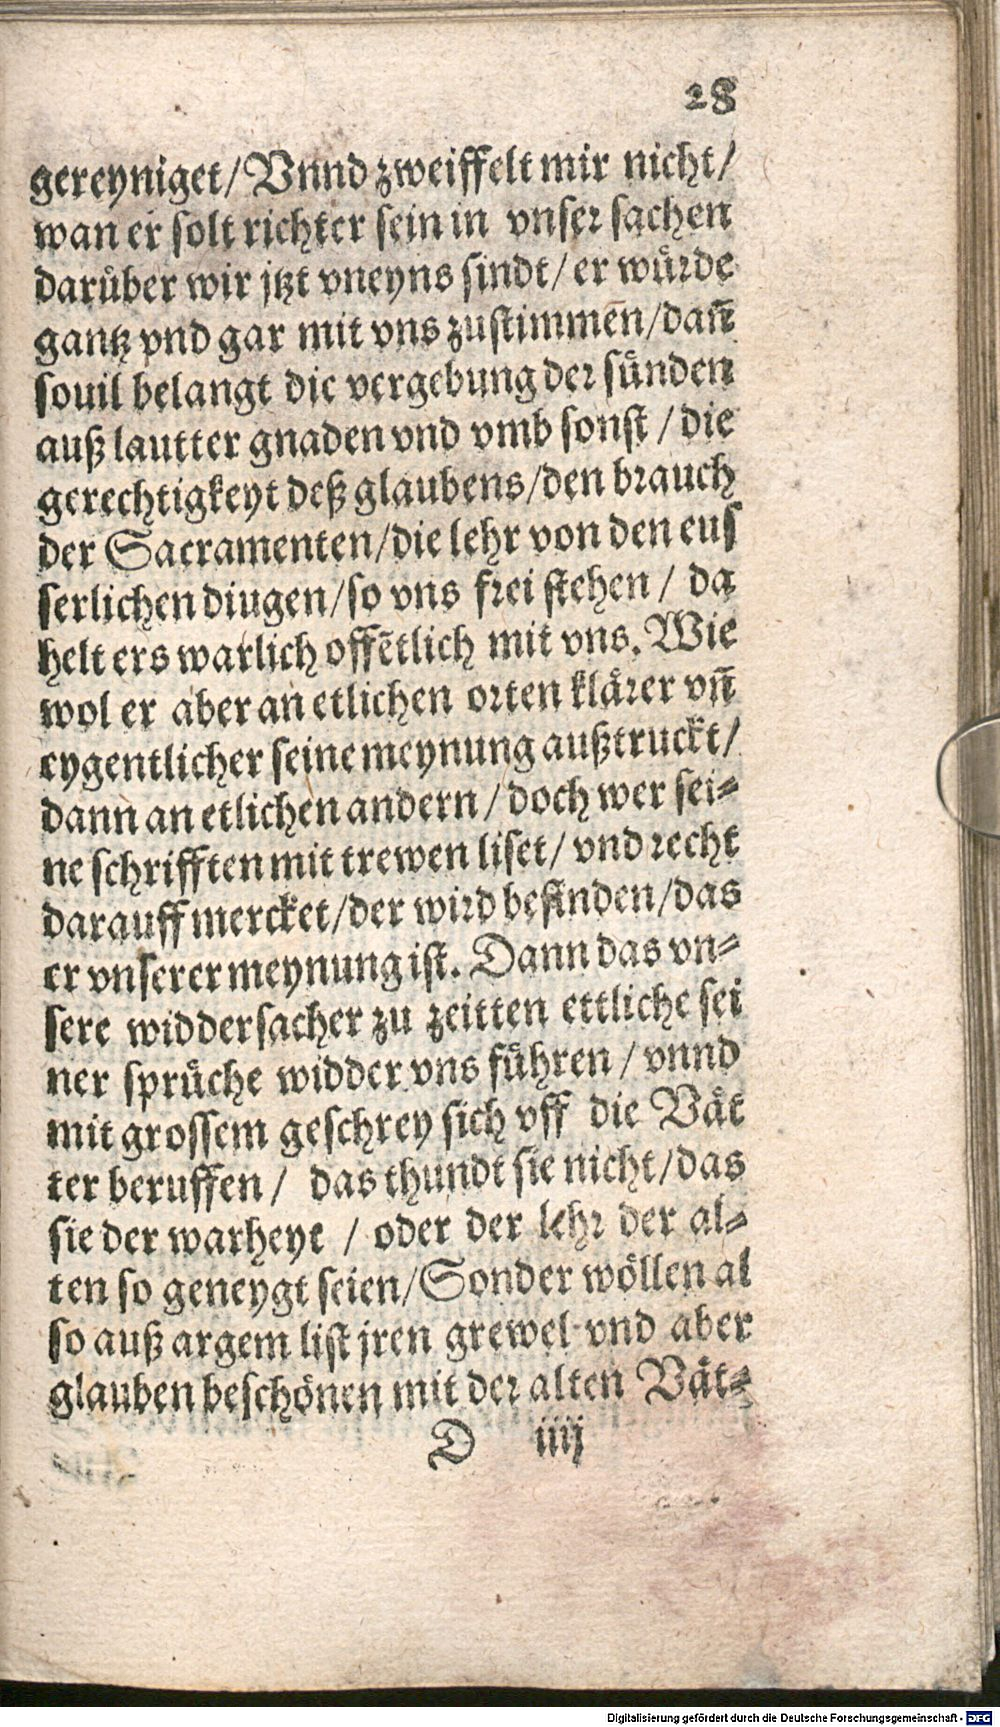 28
gereyniget/Vnnd zweiffelt mir nicht/
wan er solt richter sein in vnser sachen
darüber wir jtzt vneyns sindt/er würde
gantz vnd gar mit vns zustimmen̄/dañ
souil belangt die vergebung der sünden
auß lautter gnaden vnd vmb sonst/die
gerechtigkeyt deß glaubens/den brauch
der Sacramenten/die lehr von den eus
serlichen diugen/so vns frei stehen/da
helt ers warlich offētlich mit vns. Wie
wol er aber an etlichen orten klärer vñ
eygentlicher seine meynung außtruckt/
dann an etlichen andern/doch wer sei-
ne schrifften mit trewen liset/vnd recht
darauff mercket/der wird befinden/das
er vnserer meynung ist. Dann das vn-
sere widdersacher zu zeitten ettliche sei
ner sprüche widder vns führen/vnnd
mit grossem geschrey sich vff die Vät
ter beruffen/das thundt sie nicht/das
sie der warheyt/oder der lehr der al-
ten so geneygt seien/Sonder wöllen al
so auß argem list jren grewel vnd aber
glauben beschönen mit der alten Vät-
D iiij
Digitalisierung gefördert durch die Deutsche Forschungsgemeinschaft - DFG